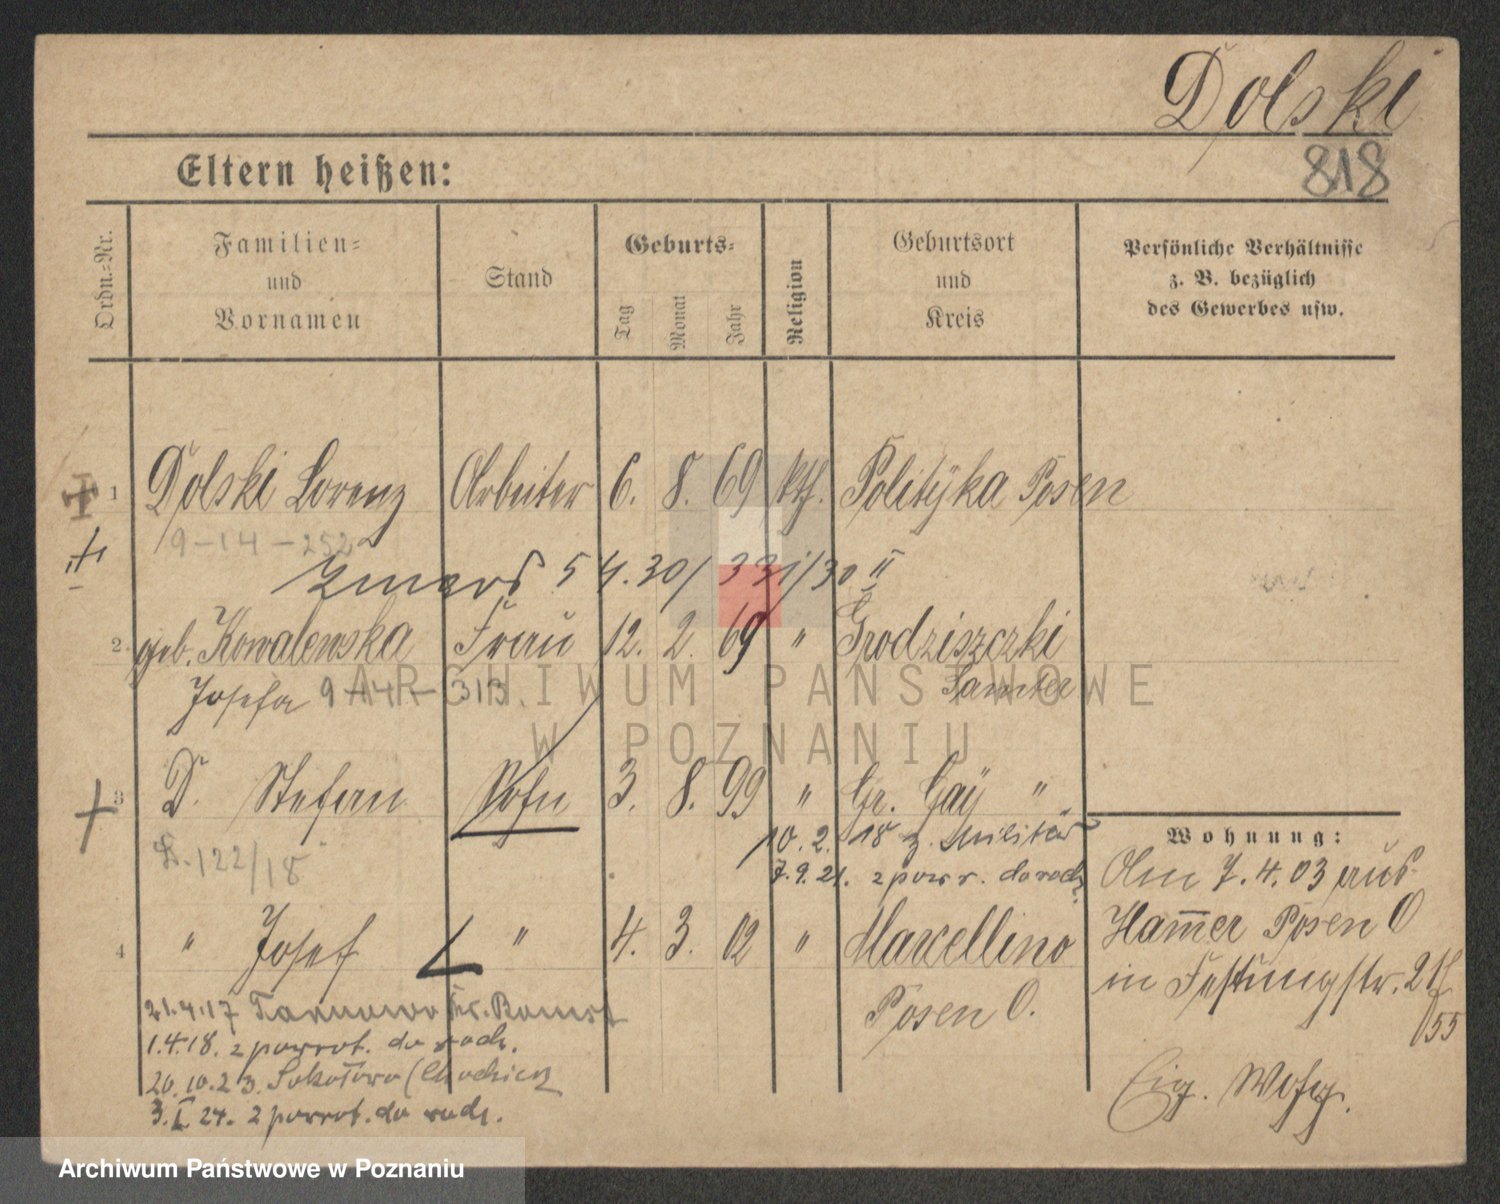 Dolski
818
Eltern heißen:
Ordn.-Nr.
Familien- und Vornamen
Stand
Geburts-
Tag
Monat
Jahr
Religion
Geburtsort und Kreis
Persönliche Verhältnisse z. B. bezüglich des Gewerbes usw.
1 Dolski Lorenz Arbeiter 6. 8. 69 kth. Polityka Posen
9-14-252
zmarł 5 4.30/ 331/30 II
2. geb. Kowalewska Frau 12. 2. 69 " Grodziszczki
Josefa 9-14-313. Samter
3 D. Stefan Sohn 3. 8. 99 " Gr. Gay "
10. 2. 18 z. Militär
L. 122/18
7. 9. 21. z powr. do rodz.
4 " Josef " 4. 3. 02 " Marcellino
Posen O.
21.4.17 Tarnowo Kr. Bomst
1.4.18. z powrot. do rodz.
20.10.23. Sokołowo
3.I 24. z powrot. do rodz.
Wohnung:
Am 7. 4. 03 aus
Hammer Posen O
in Festungstr. 21
55
Eig. Wohg.
ARCHIWUM PAŃSTWOWE
W POZNANIU
Archiwum Państwowe w Poznaniu